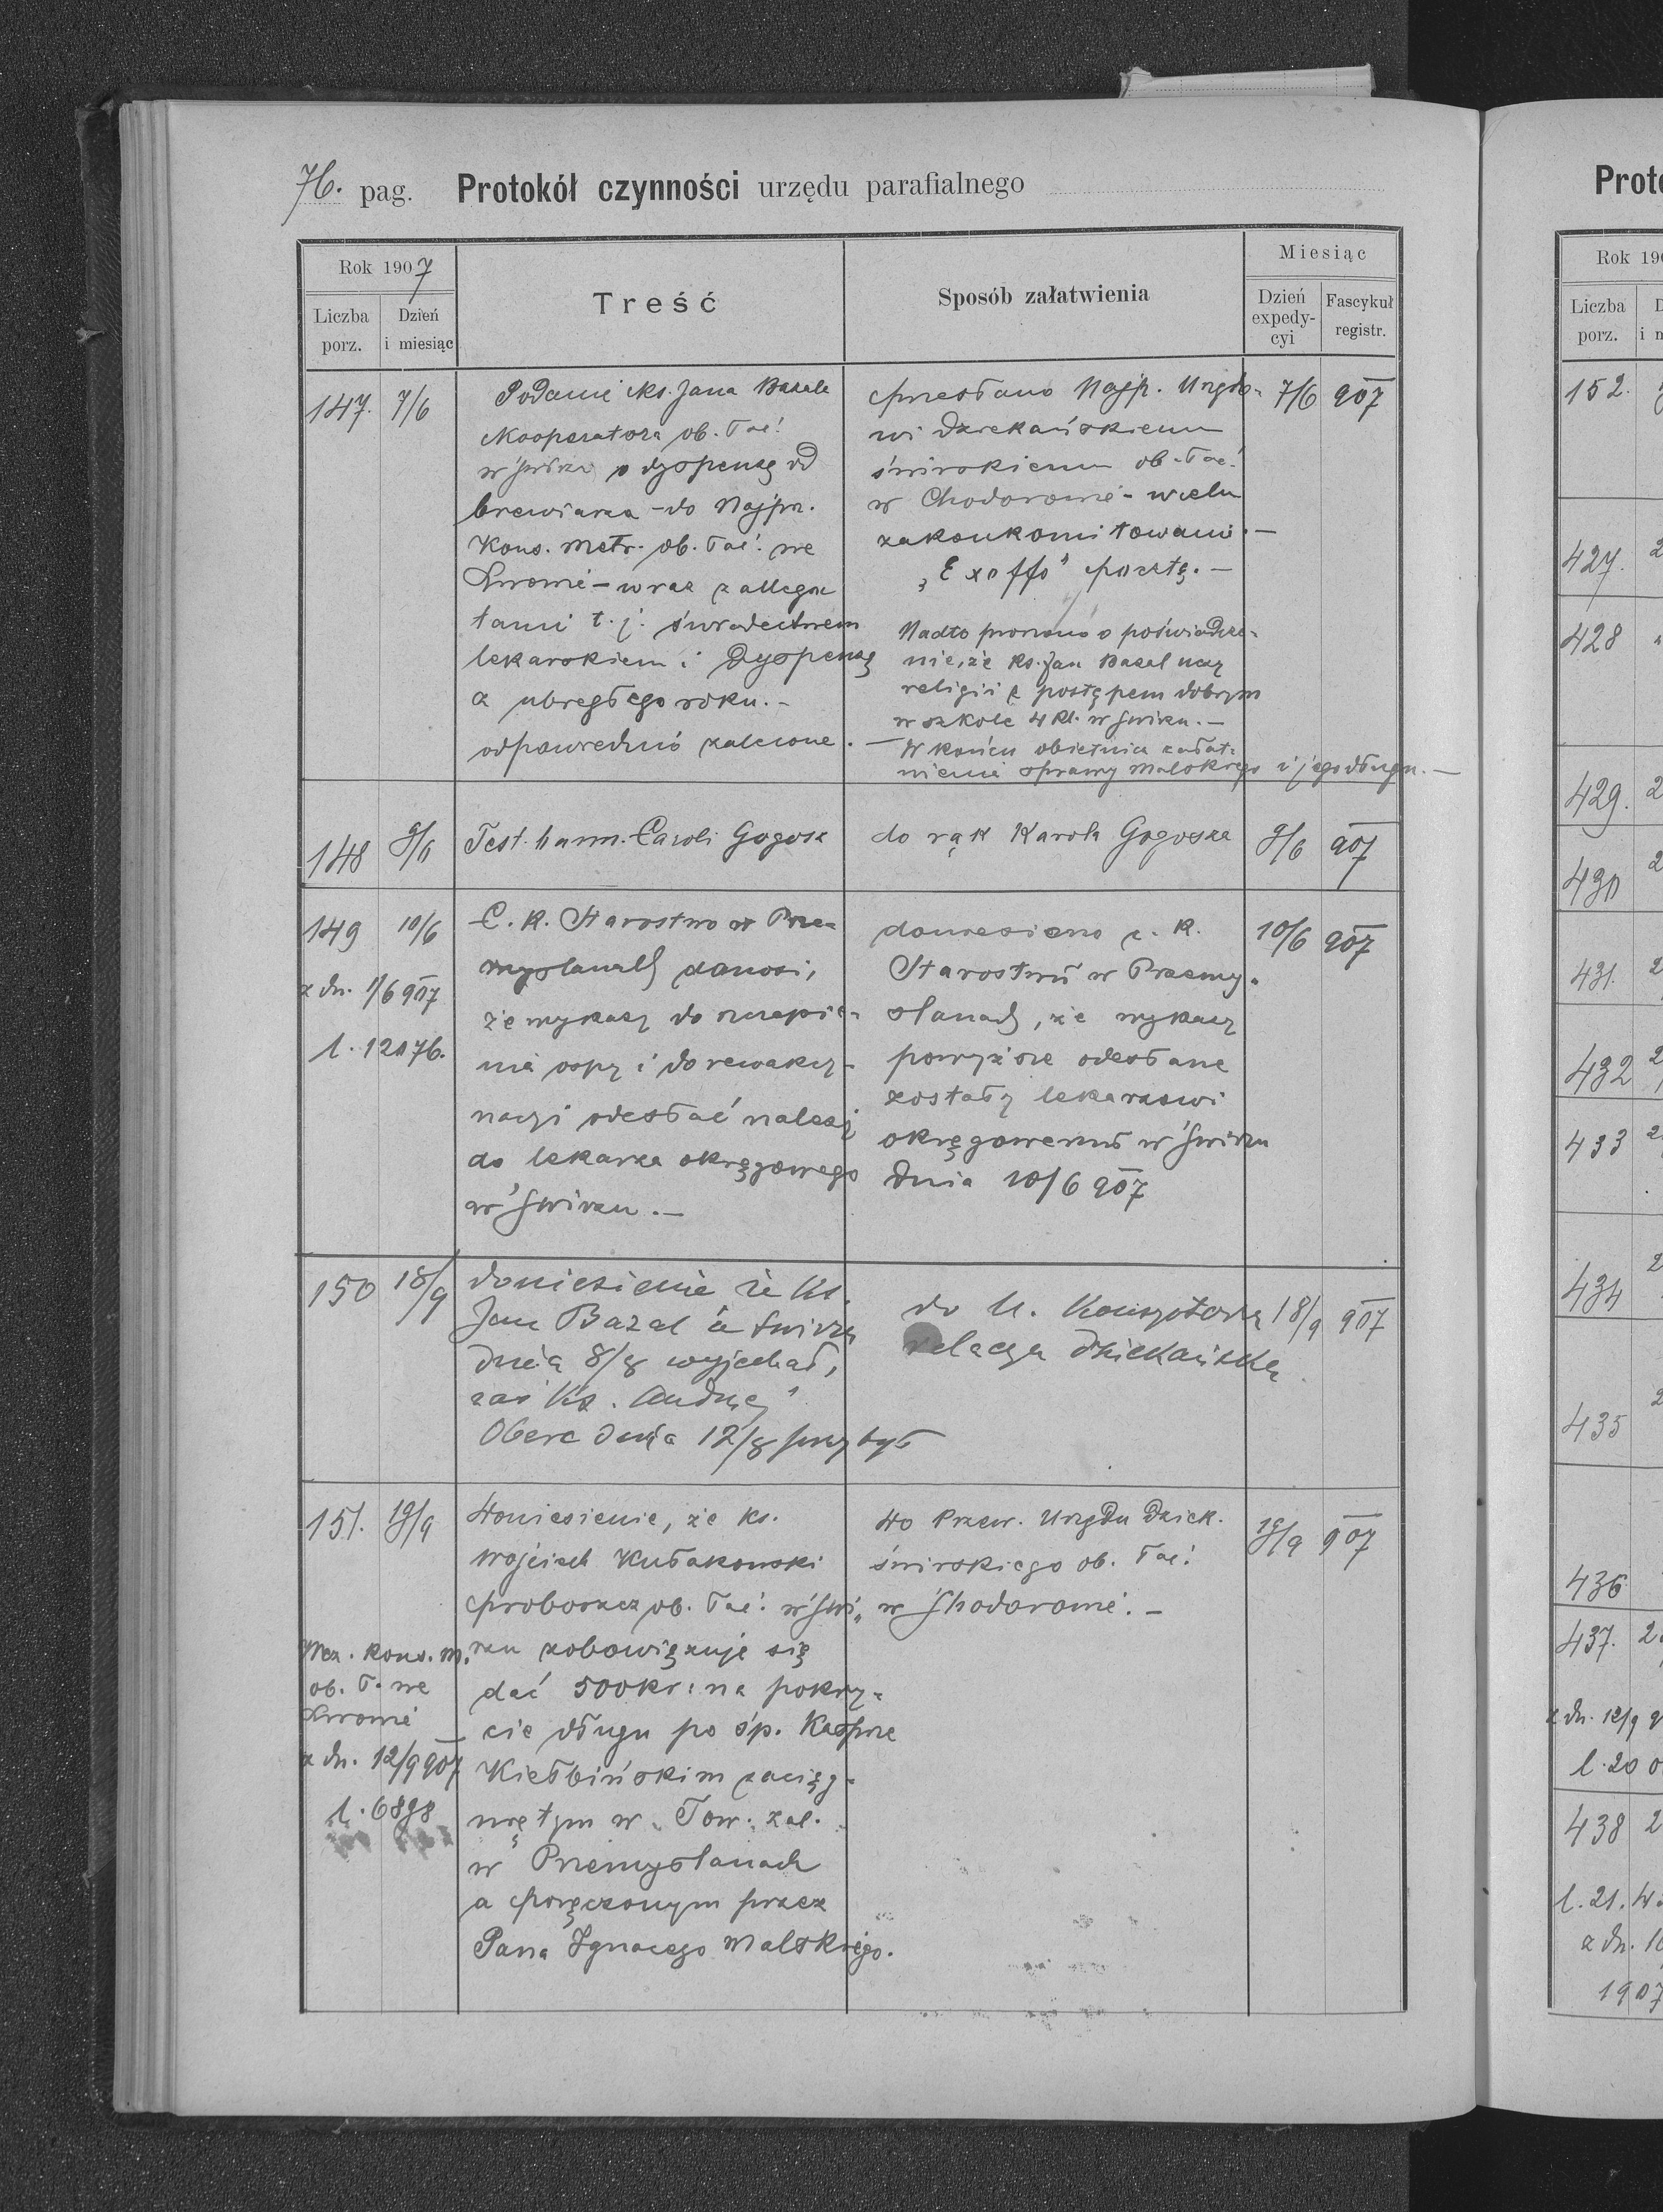 76. pag. Protokół czynności urzędu parafialnego
Rok 1907
Liczba porz.
Dzień i miesiąc
Treść
Sposób załatwienia
Miesiąc
Dzień expedycyi
Fascykuł registr.
147. 7/6
Podanie ks. Jana Bazala
Kooperatora ob. łać.
w Świrzu o dyspensę od
brewiarza - do Najprz.
Kons. Metr. ob. łać. we
Lwowie - wraz z allega
tami t. j. świadectwem
lekarskiem i dyspensą
z ubiegłego roku. -
odpowiednio zalecone. -
Przesłano Najp. Urzędo-
wi dziekańskiemu
świrskiemu ob. łać.
w Chodorowie - celu
zakonkomitowania. -
„Exoffo" pocztą. -
Nadto proszono o poświadcze-
nie, że ks. Jan Bazal uczy
religii z postępem dobrym
w szkole 4 kl. w Świrzu. -
W końcu obietnica załat-
nienia sprawy Malskiego i jego długu. -
7/6 907
148 9/6
Test. bann. Caroli Gogosz
do rąk Karola Gogosza
9/6 907
149 10/6
z dn. 1/6 907
l. 12076.
C. K. Starostwo w Prze-
myślanach donosi,
że wykazy do szczepie-
nia ospy i do rewakcy-
nacyi odesłać należy
do lekarza okręgowego
w Świrzu. -
doniesiono c. k.
Starostwu w Przemy-
ślanach, że wykazy
powyższe odesłane
zostały lekarzowi
okręgowemu w Świrzu
dnia 10/6 907
10/6 907
150 18/9
doniesienie że ks.
Jan Bazal ze Świrza
dnia 8/8 wyjechał,
zaś ks. Andrzej
Oberc dnia 12/8 przybył
do N. Konsystorza
relacya dziekańska
18/9 907
151. 19/9
ob. ł. we
Lwowie
z dn. 12/9 907
l. 6898
Doniesienie, że ks.
Wojciech Kułakowski
proboszcz ob. łać. w Świ-
rzu zobowiązuje się
dać 500 kr: na pokry-
cie długu po śp. Kasprze
Kiełbińskim zaciąg-
niętym w Tow. zal.
w Przemyślanach
a poręczonym przez
Pana Ignacego Malskiego.
do Przew. Urzędu Dziek.
świrskiego ob. łać.
w Chodorowie. -
19/9 907
Rok 190
Liczba porz.
152.
427.
428
429.
430
431.
432
433
434
435
436
437.
z dn. 12/9
438
l. 21.
z dn.
1907